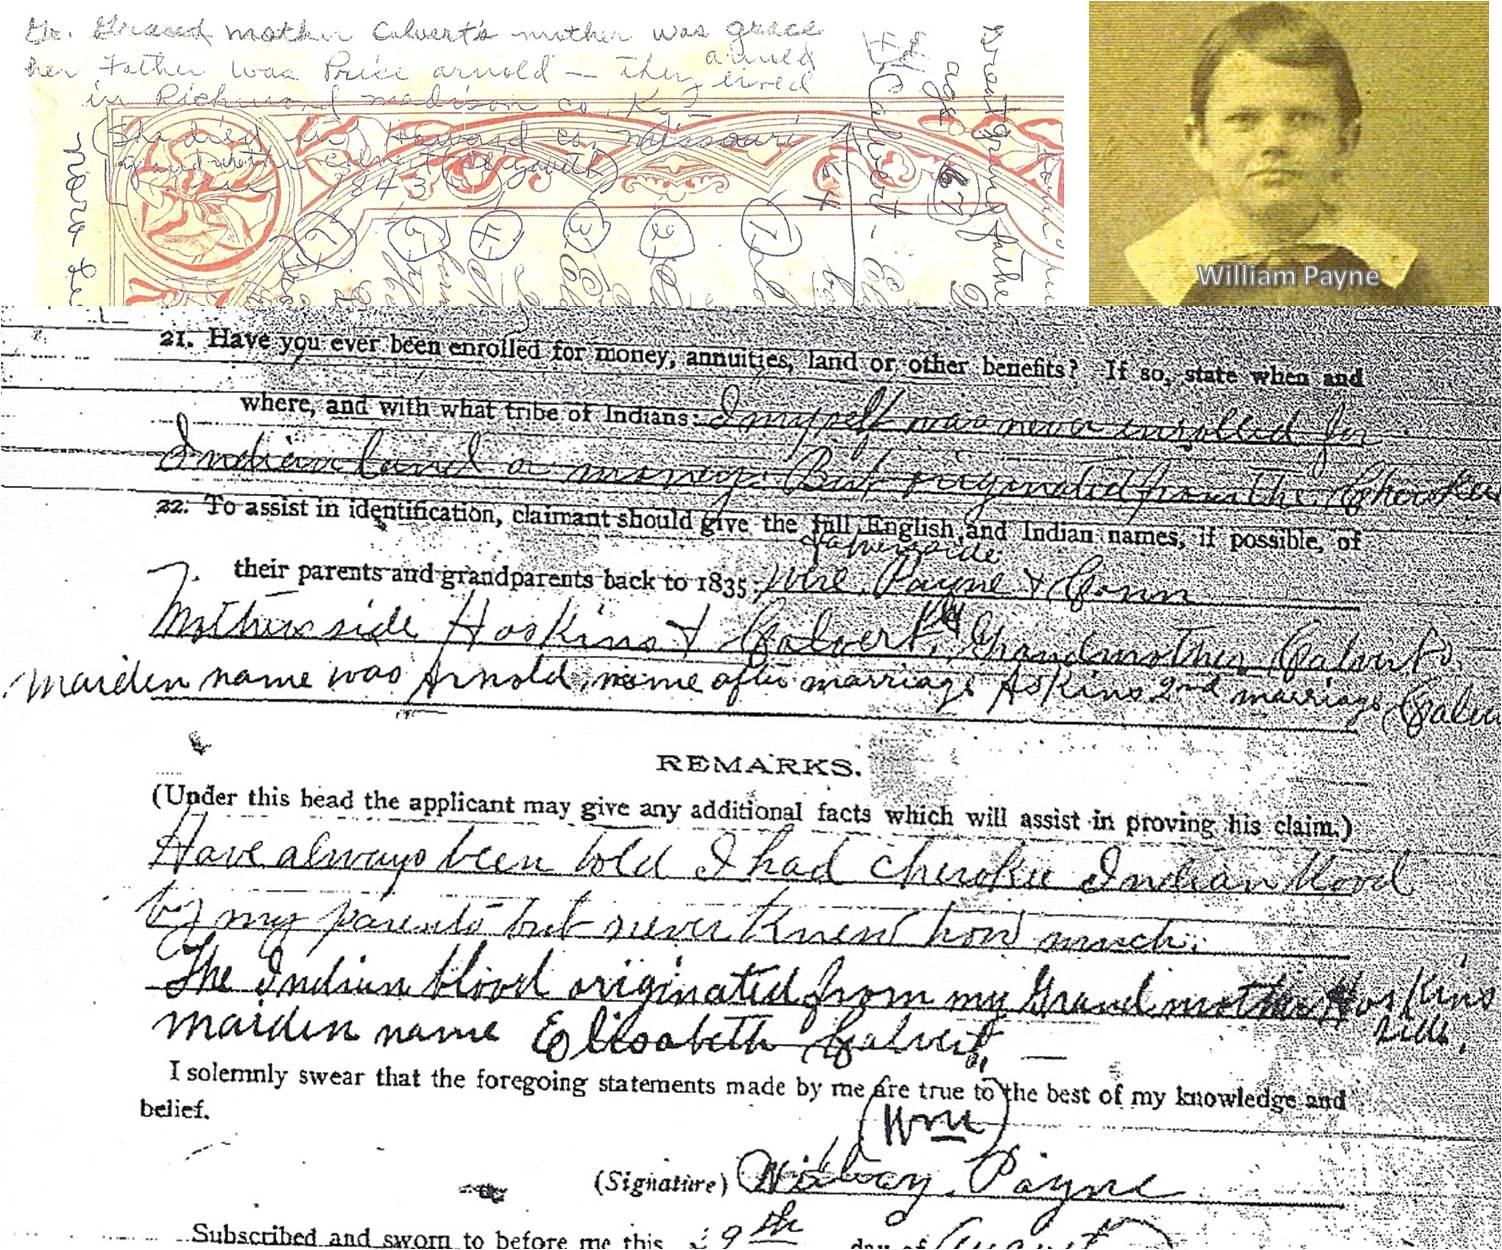 Gr. Grand mother Calvert's mother was grace
arnold
her Father was Price arnold — they lived
in Richmond madison co. K.T
(She died in Howard co, Missouri
grandmother
1843
6
5
4
3
2
1
64
Calvert
age
67
great grand father
William Payne
21. Have you ever been enrolled for money, annuities, land or other benefits? If so, state when and
where, and with what tribe of Indians: I myself was never enrolled for
Indian land or money. But originated from the Cherokee
22. To assist in identification, claimant should give the full English and Indian names, if possible, of
Fathers side
their parents and grandparents back to 1835: Wm. Payne & Conn
Mothers side Hoskins & Calvert. Grandmother Calverts
maiden name was Arnold, name after marriage Askins 2nd marriage Calvert
REMARKS.
(Under this head the applicant may give any additional facts which will assist in proving his claim.)
Have always been told I had cherokee Indian blood
by my parents but never knew how much.
The Indian blood originated from my Grandmother Hoskins
side.
maiden name Elisabeth Calvert. —
I solemnly swear that the foregoing statements made by me are true to the best of my knowledge and
belief.
(Wm)
(Signature) Payne
Subscribed and sworn to before me this 9th day of August